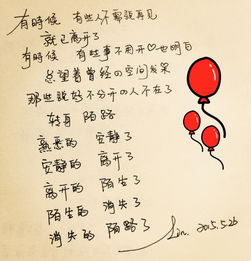 有時候 有些人不需說再見
就已離開了
有時候 有些事不用開口也明白
總望着曾經の空间发呆
那些說好不分开の人不在了
转身 陌路
熟悉的 安静了
安静的 离开了
离开的 陌生了
陌生的 消失了
消失的 陌路了
Lin. 2015.5.26